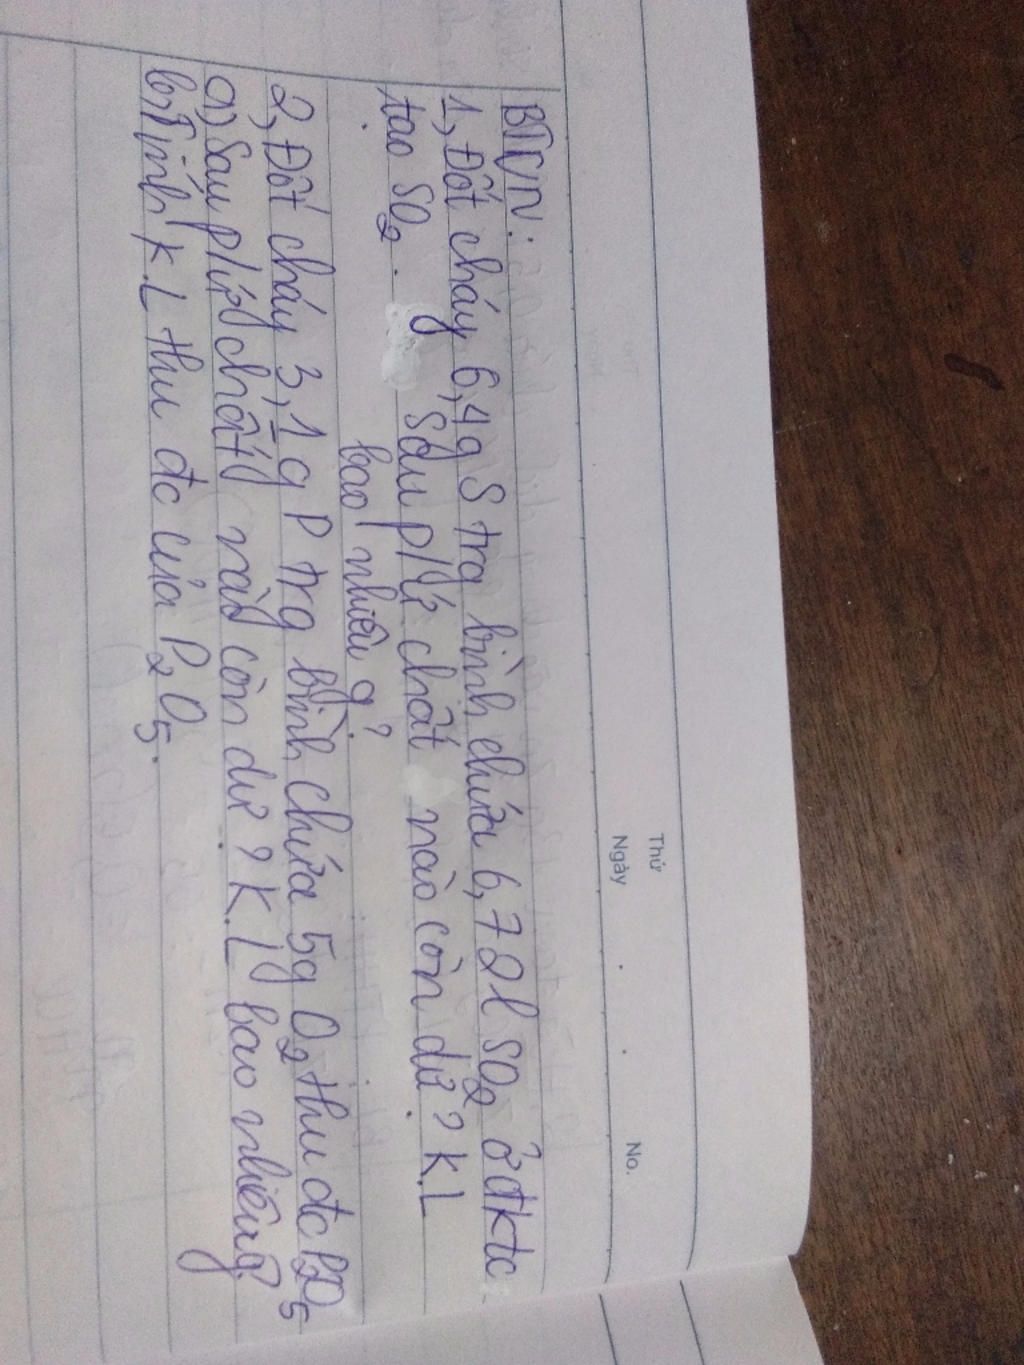 Thứ
Ngày
No.
BTVN:
1, Đốt cháy 6,4g S trg bình chứa 6,72l SO2 ở đktc
tạo SO2. Sau pứ chất nào còn dư? K.L
bao nhiêu g?
2, Đốt cháy 3,1g P trg bình chứa 5g O2 thu đc P2O5
a, Sau pứ chất nào còn dư? K.L bao nhiêu g?
b, Tính K.L thu đc của P2O5.